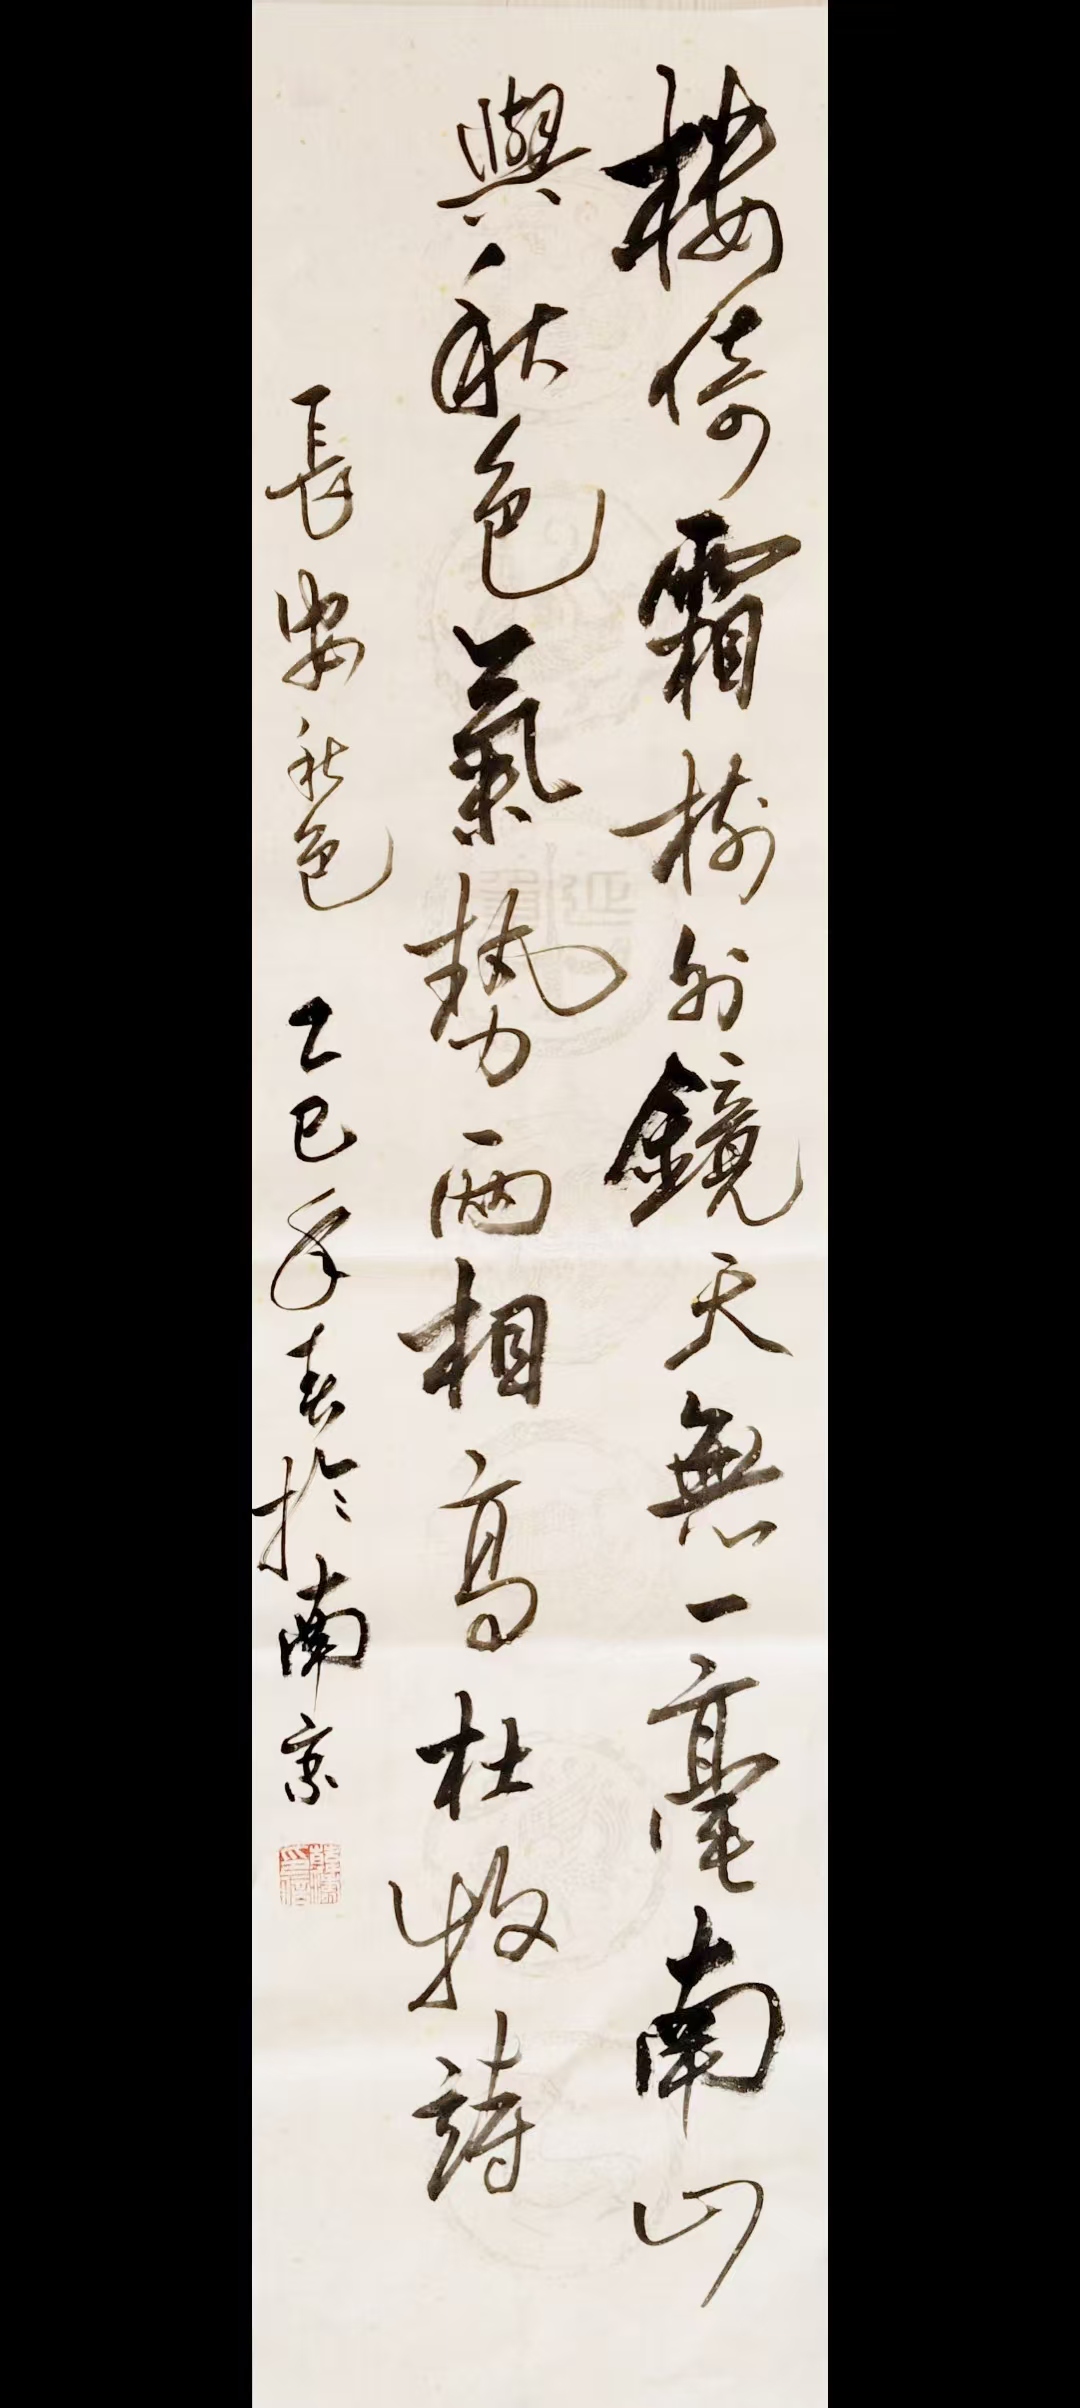 樓倚霜樹外鏡天無一毫南山
與秋色氣勢兩相高杜牧詩
長安秋色 乙巳年春於南京